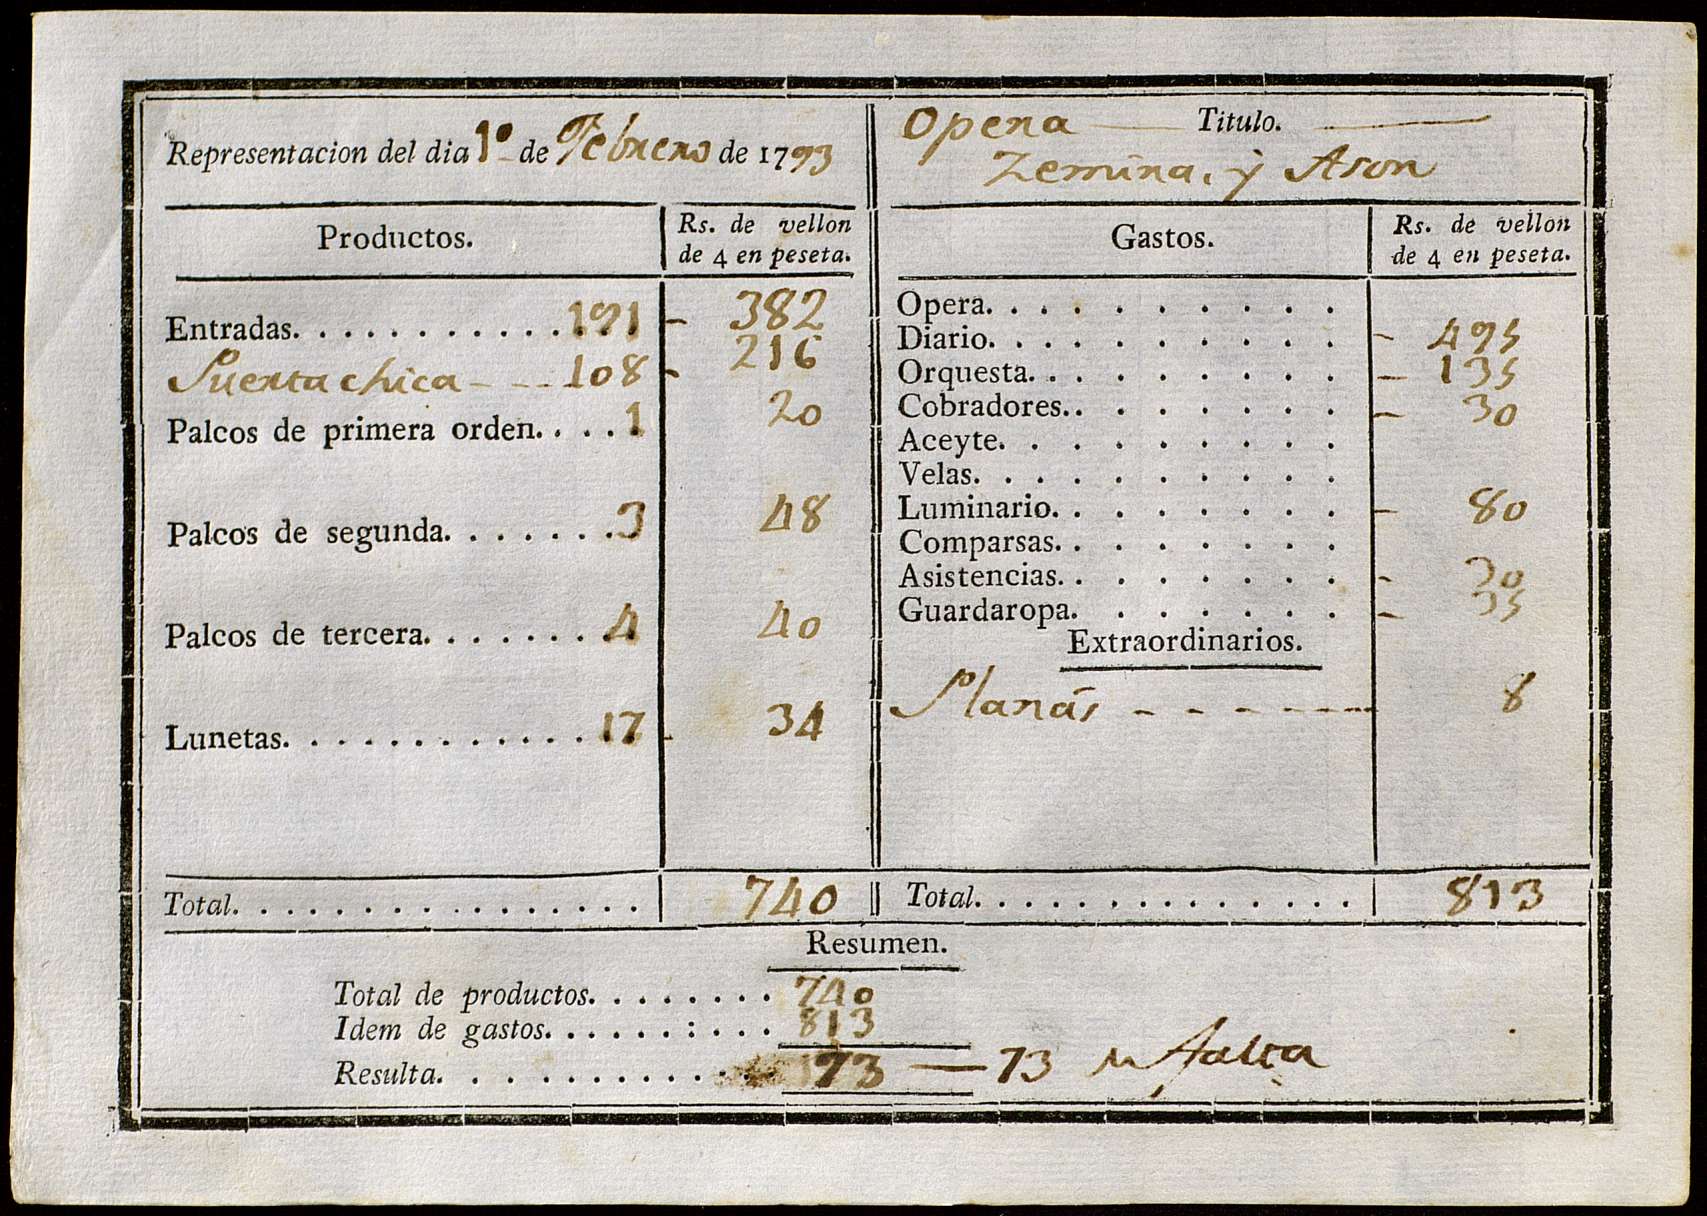 Representacion del dia 1º de Febrero de 1793
Opera — Titulo. —
Zemira, y Asor
Productos. Rs. de vellon de 4 en peseta.
Entradas. . . . . . . . . . . . 191 - 382
Puerta chica - - - 108 - 216
Palcos de primera orden. . . . 1 20
Palcos de segunda. . . . . . . 3 48
Palcos de tercera. . . . . . . 4 40
Lunetas. . . . . . . . . . . . 17 - 34
Total. . . . . . . . . . . . . . . . 740
Gastos. Rs. de vellon de 4 en peseta.
Opera. . . . . . . . . .
Diario. . . . . . . . . . - 495
Orquesta. . . . . . . . . - 135
Cobradores. . . . . . . . - 30
Aceyte. . . . . . . . .
Velas. . . . . . . . . .
Luminario. . . . . . . . - 80
Comparsas. . . . . . . .
Asistencias. . . . . . . . - 30
Guardaropa. . . . . . . - 35
Extraordinarios.
Planás - - - - - - 8
Total. . . . . . . . . . . . . . . 813
Resumen.
Total de productos. . . . . . . . 740
Idem de gastos. . . . . . : . . . 813
Resulta. . . . . . . . . . . . 73 — 73 rs falta